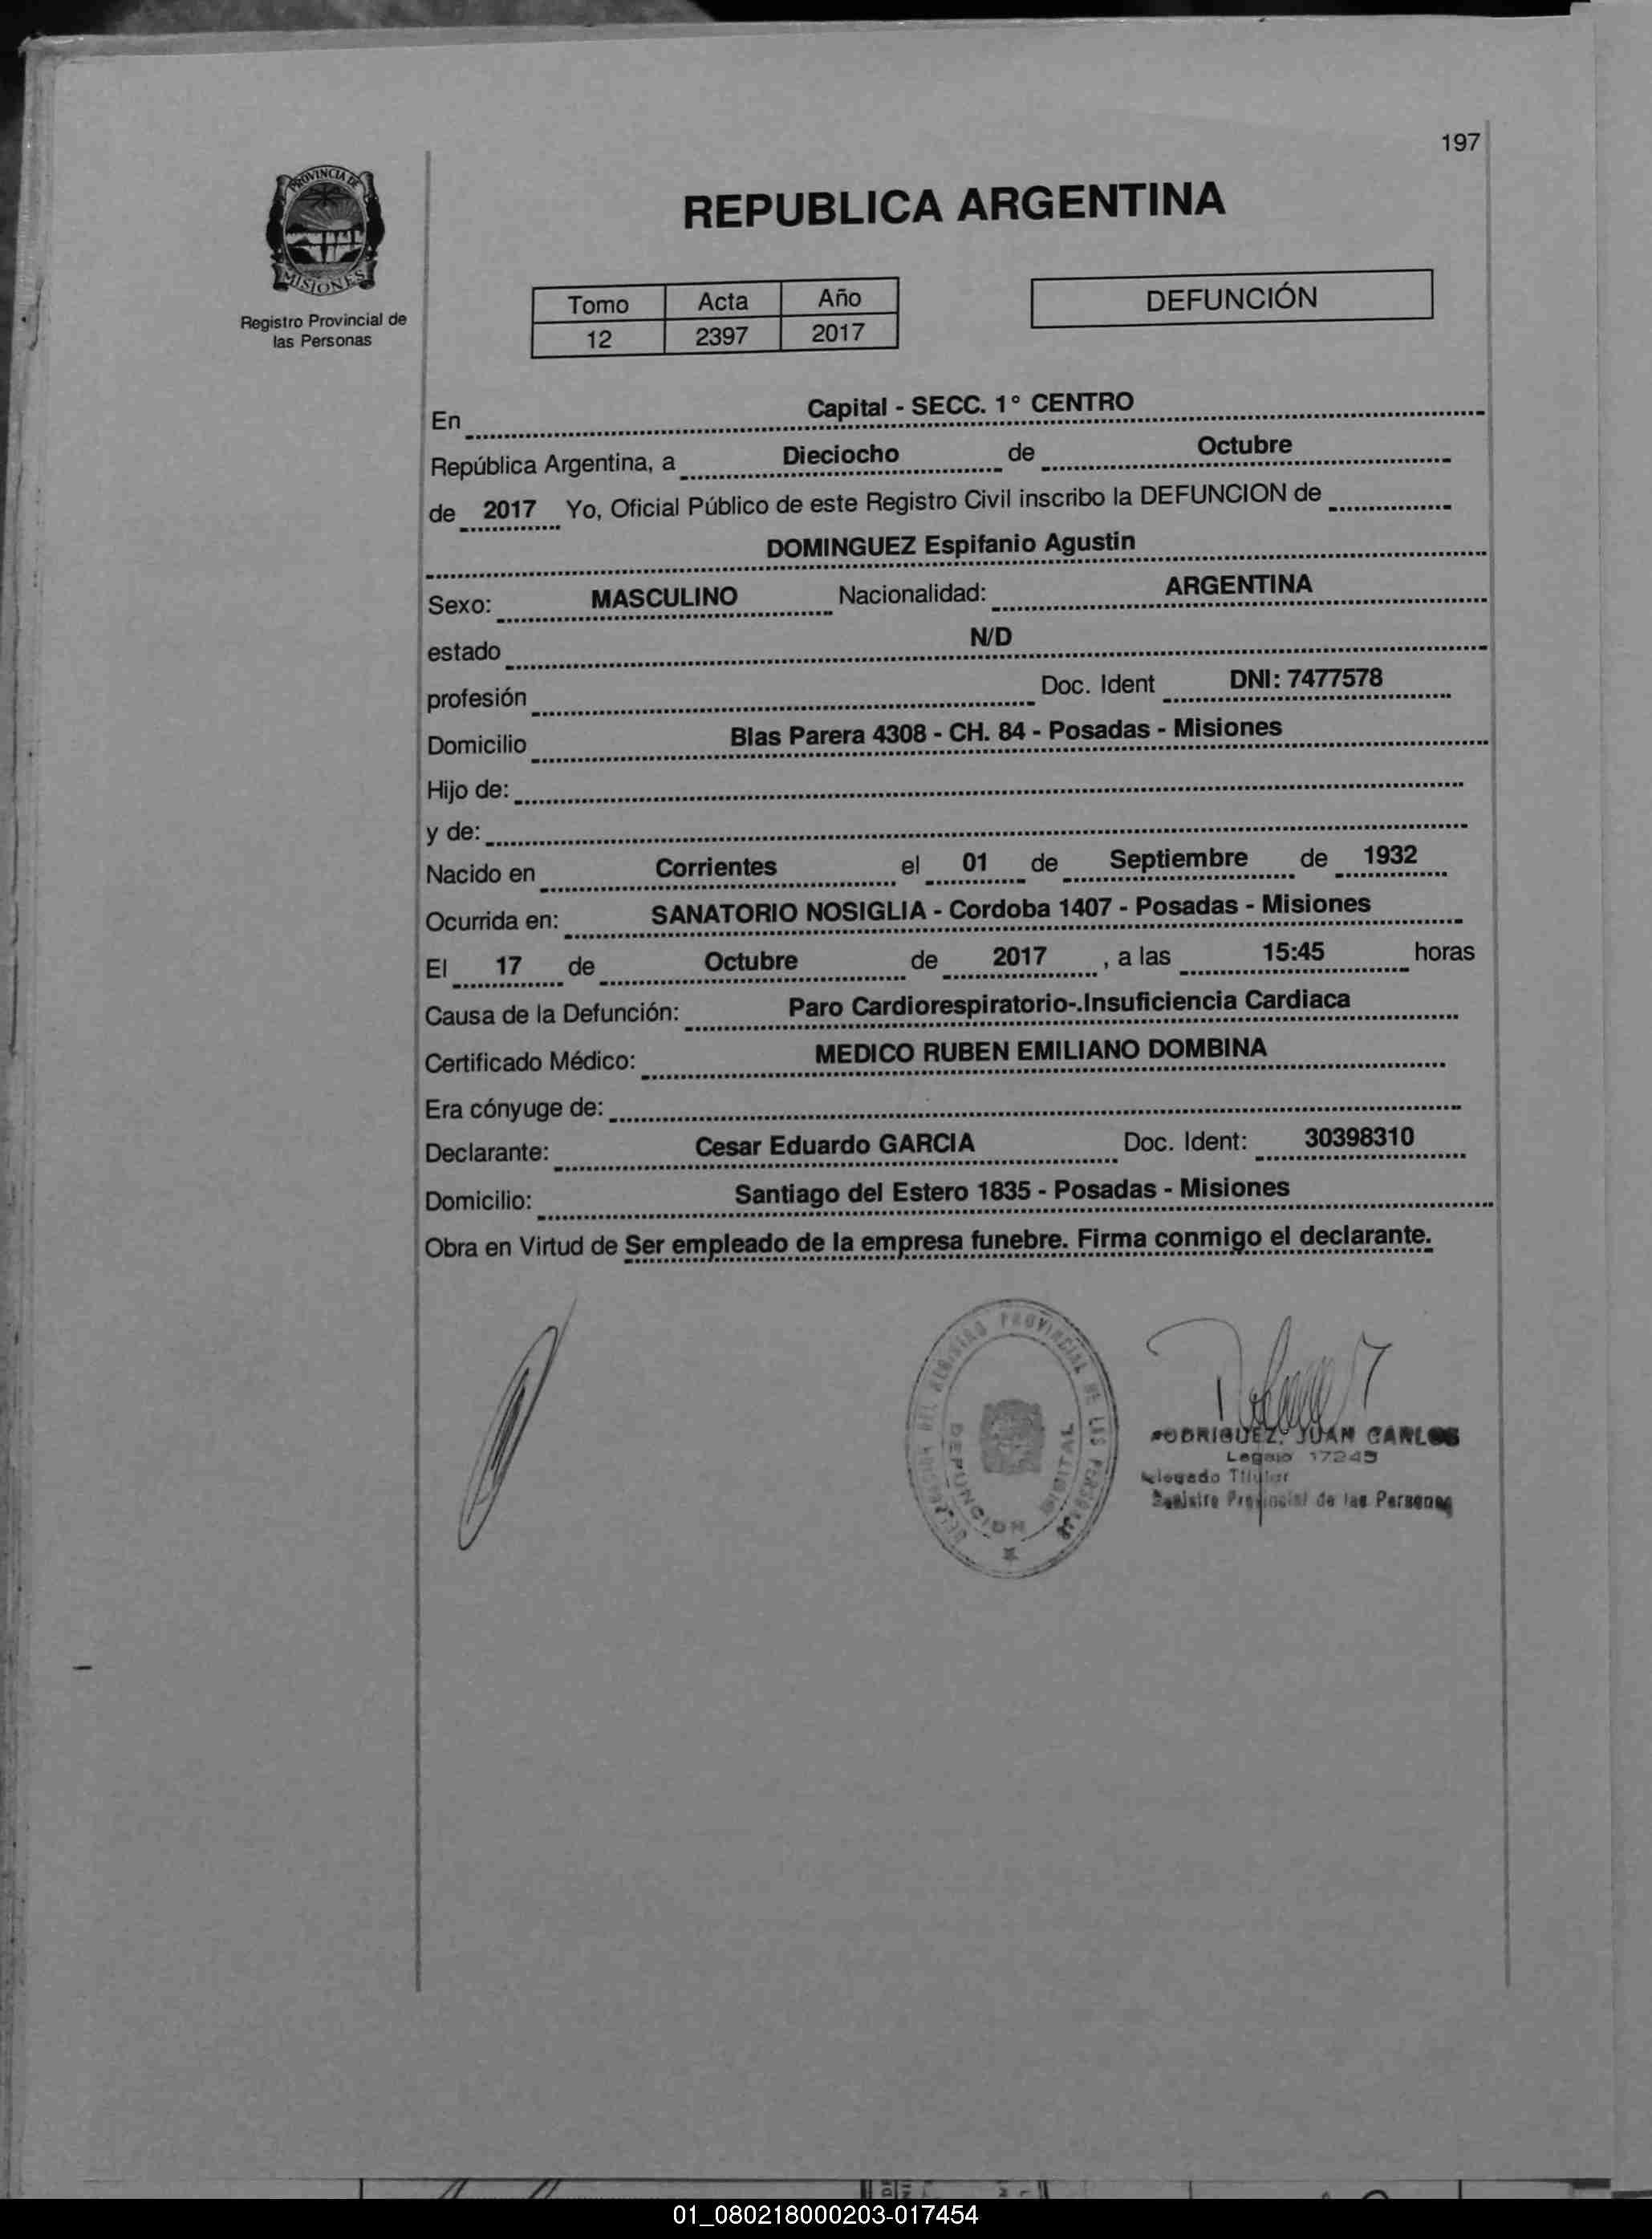 197
PROVINCIA DE
MISIONES
Registro Provincial de
las Personas
REPUBLICA ARGENTINA
Tomo Acta Año
12 2397 2017
DEFUNCIÓN
En Capital - SECC. 1° CENTRO
República Argentina, a Dieciocho de Octubre
de 2017 Yo, Oficial Público de este Registro Civil inscribo la DEFUNCION de
DOMINGUEZ Espifanio Agustin
Sexo: MASCULINO Nacionalidad: ARGENTINA
estado N/D
profesión Doc. Ident DNI: 7477578
Domicilio Blas Parera 4308 - CH. 84 - Posadas - Misiones
Hijo de:
y de:
Nacido en Corrientes el 01 de Septiembre de 1932
Ocurrida en: SANATORIO NOSIGLIA - Cordoba 1407 - Posadas - Misiones
El 17 de Octubre de 2017 , a las 15:45 horas
Causa de la Defunción: Paro Cardiorespiratorio-.Insuficiencia Cardiaca
Certificado Médico: MEDICO RUBEN EMILIANO DOMBINA
Era cónyuge de:
Declarante: Cesar Eduardo GARCIA Doc. Ident: 30398310
Domicilio: Santiago del Estero 1835 - Posadas - Misiones
Obra en Virtud de Ser empleado de la empresa funebre. Firma conmigo el declarante.
DEL REGISTRO PROVINCIAL DE LAS PERSONAS
DEFUNCION DIGITAL
RODRIGUEZ, JUAN CARLOS
Legajo 17245
Delegado Titular
Registro Provincial de las Personas
01_080218000203-017454